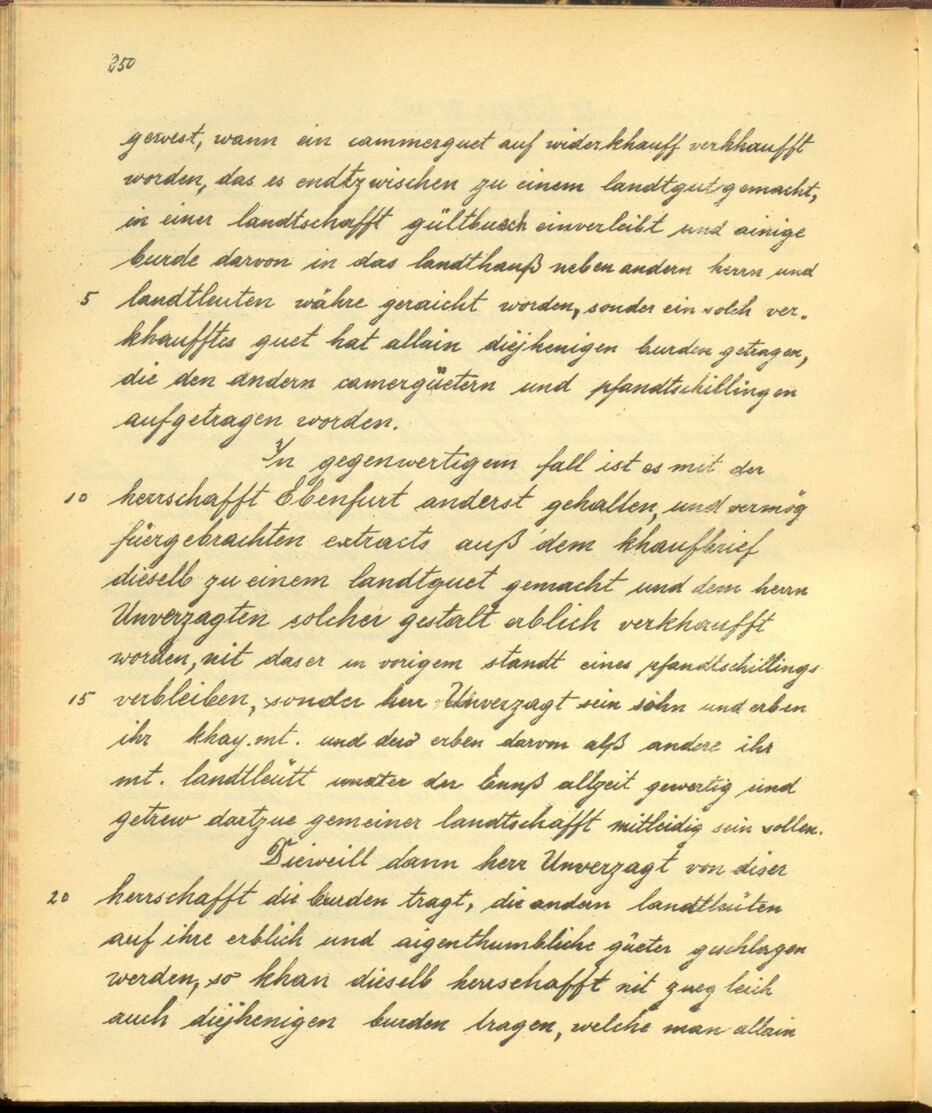 250
gewest, wann ein cammerguet auf widerkhauff verkhaufft
worden, das es endtzwischen zu einem landtgut gemacht,
in einer landtschafft gültbuech einverleibt und ainige
burde darvon in das landthauß neben andern herrn und
5 landtleuten währe geraicht worden, sonder ein solch ver-
khaufftes guet hat allain diejhenigen burden getragen,
die den andern camergüetern und pfandtschillingen
aufgetragen worden.
In gegenwertigem fall ist es mit der
10 herrschafft Ebenfurt anderst gehalten, und vermög
füergebrachten extracts auß dem khaufbrief
dieselb zu einem landtguet gemacht und dem herrn
Unverzagten solcher gestalt erblich verkhaufft
worden, nit das er in vorigem standt eines pfandtschillings
15 verbleiben, sonder herr Unverzagt sein sohn und erben
ihr khay. mt. und dero erben darvon alß andere ihr
mt. landtleütt undter der Ennß allzeit gewertig und
getrew dartzue gemeiner landtschafft mitleidig sein sollen.
Dieweill dann herr Unverzagt von diser
20 herrschafft die burden tragt, die andern landtleüten
auf ihre erblich und aigenthumbliche güeter geschlagen
werden, so khan dieselb herrschafft nit zuegleich
auch diejhenigen burden tragen, welche man allain